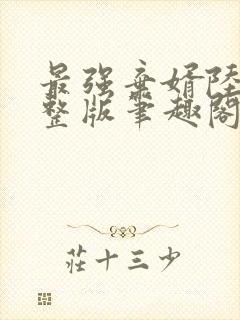 最强弃婿陆
整版笔趣阁
莊十三少